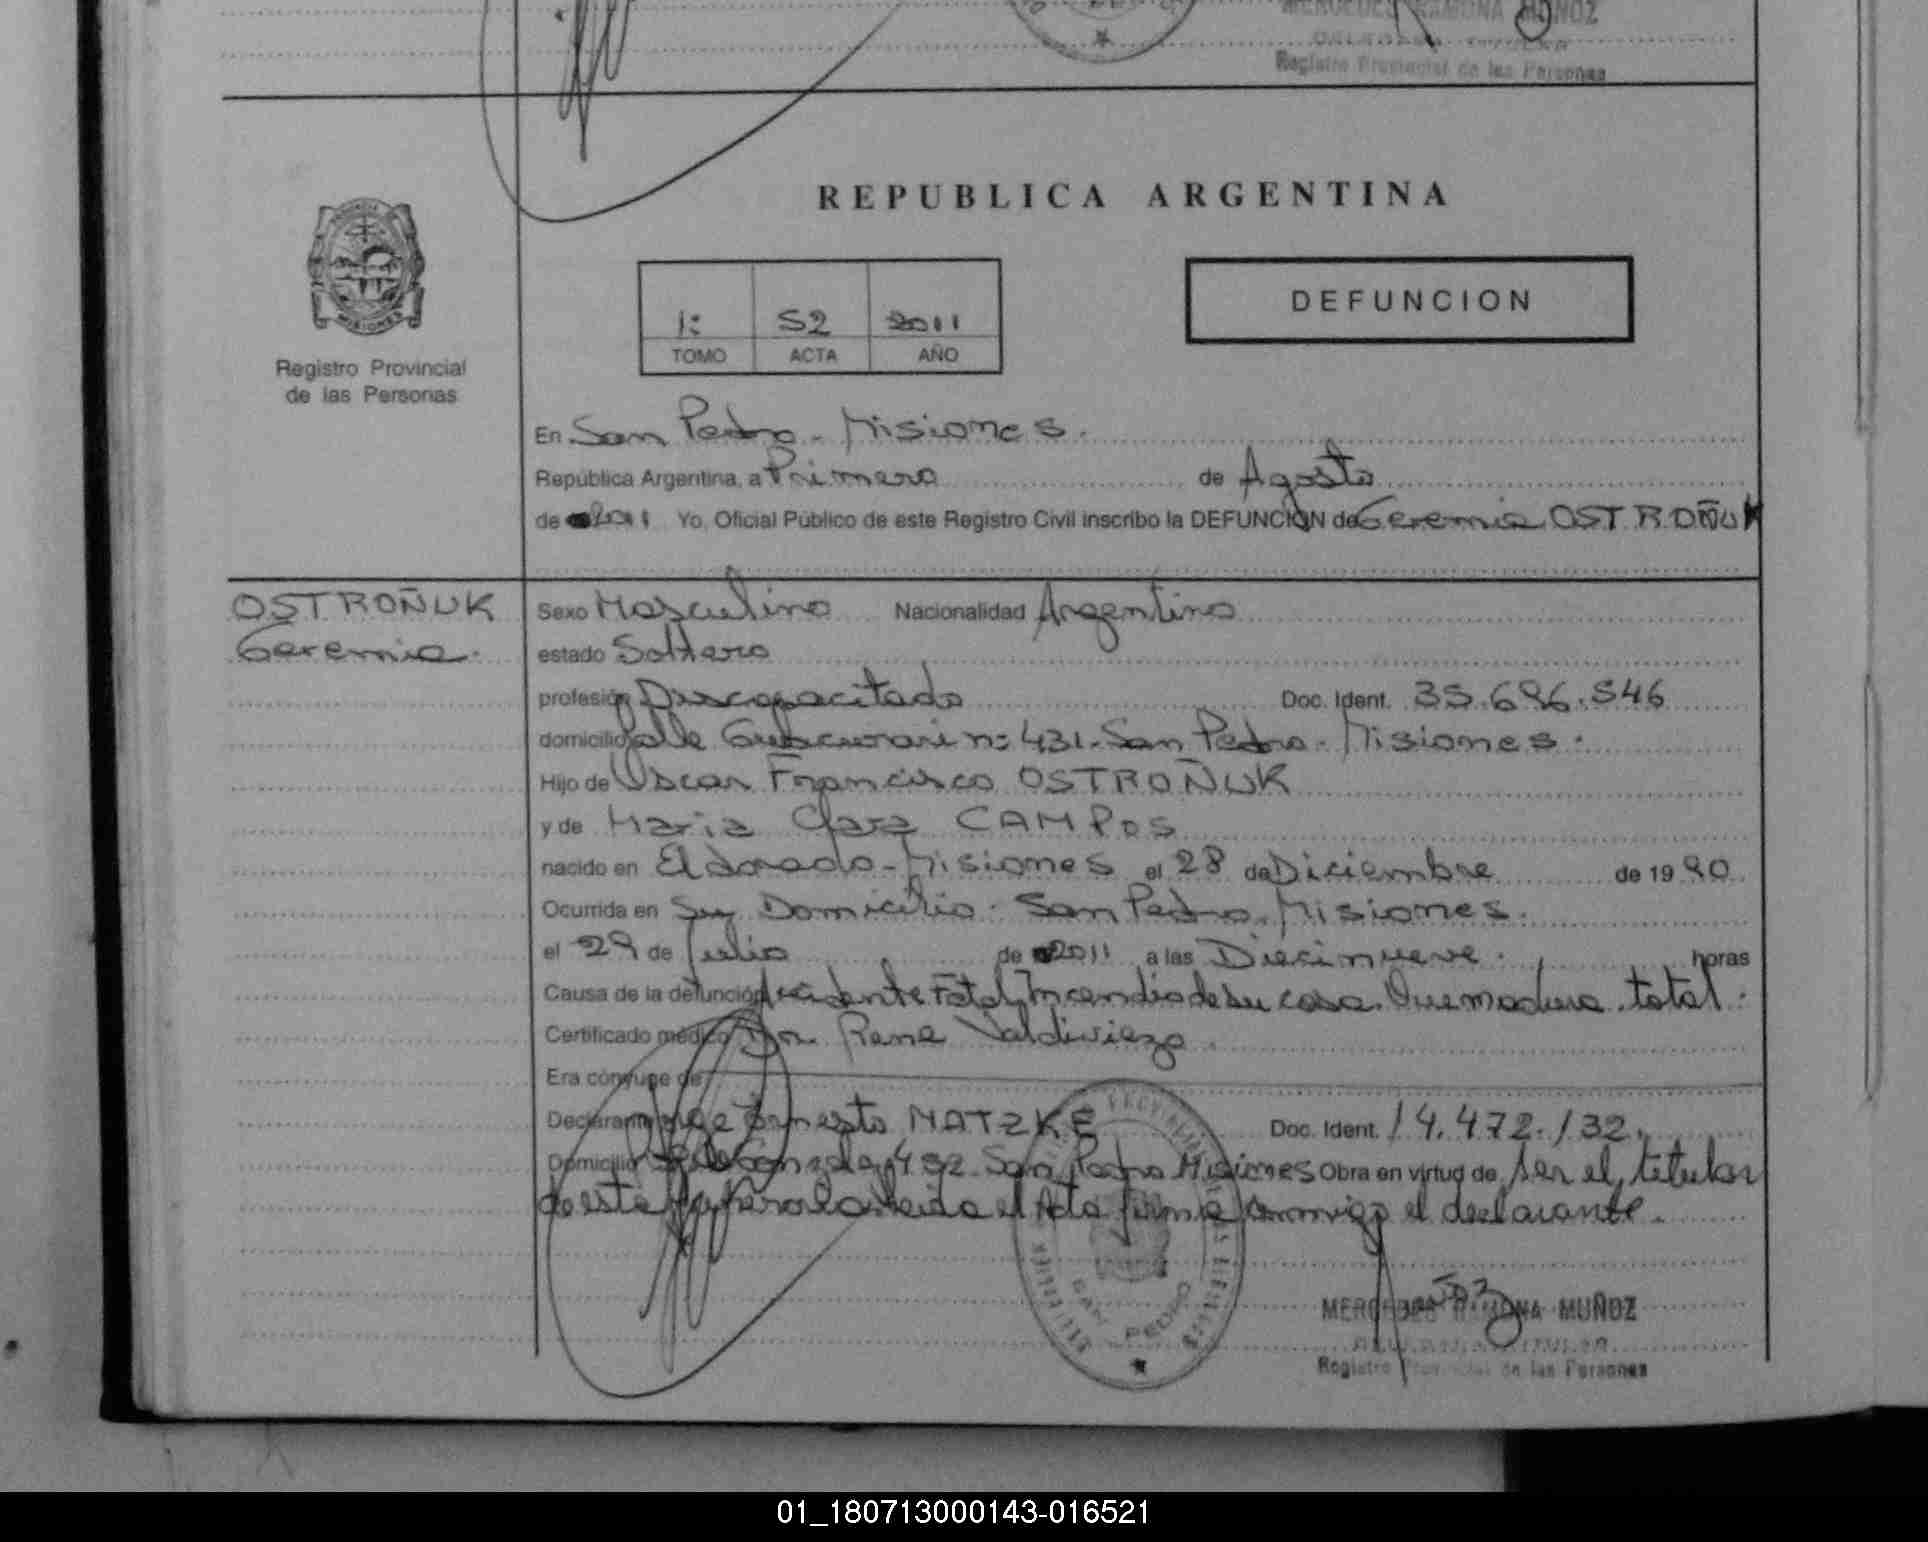 MERCEDES RAMONA MUÑOZ
Registro Provincial de las Personas
REPUBLICA ARGENTINA
1: 52 2011
TOMO ACTA AÑO
DEFUNCION
Registro Provincial
de las Personas
En San Pedro - Misiones.
República Argentina, a Primero de Agosto
de 2011 Yo, Oficial Público de este Registro Civil inscribo la DEFUNCION de Geremia OSTROÑUK
OSTROÑUK
Geremia.
Sexo Masculino Nacionalidad Argentina
estado Soltero
profesión Discapacitado Doc. Ident. 35.696.546
domicilio Calle Guacurari nº 431. San Pedro - Misiones.
Hijo de Oscar Francisco OSTROÑUK
y de Maria Clara CAMPOS
nacido en Eldorado - Misiones el 28 de Diciembre de 1990
Ocurrida en Su Domicilio. San Pedro. Misiones.
el 29 de Julio de 2011 a las Diecinueve. horas
Causa de la defunción Accidente Fatal, Incendio de su casa. Quemadura total.
Certificado médico Dr. Rene Valdiviezo
Era cónyuge de
Declarante Ernesto MATZKE Doc. Ident. 14.472.132.
Domicilio 492 San Pedro Misiones Obra en virtud de ser el titular
de este leida el Acta firma conmigo el declarante.
SAN PEDRO
MERCEDES RAMONA MUÑOZ
Registro Provincial de las Personas
01_180713000143-016521